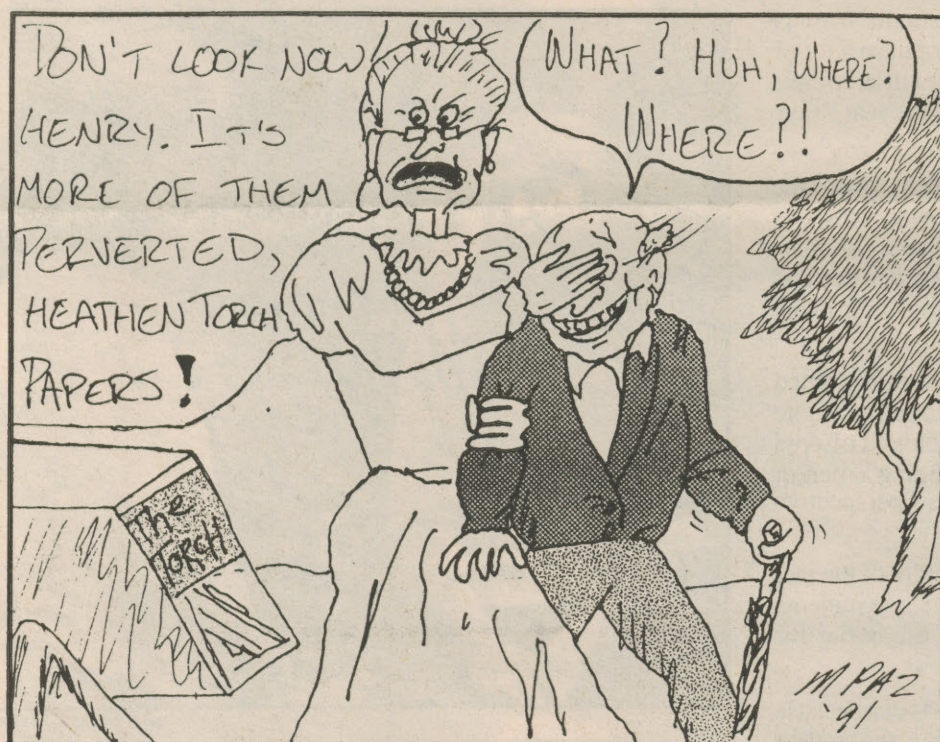 DON'T LOOK NOW
HENRY. IT'S
MORE OF THEM
PERVERTED,
HEATHEN TORCH
PAPERS!
WHAT? HUH, WHERE?
WHERE?!
The
TORCH
M PAZ
'91